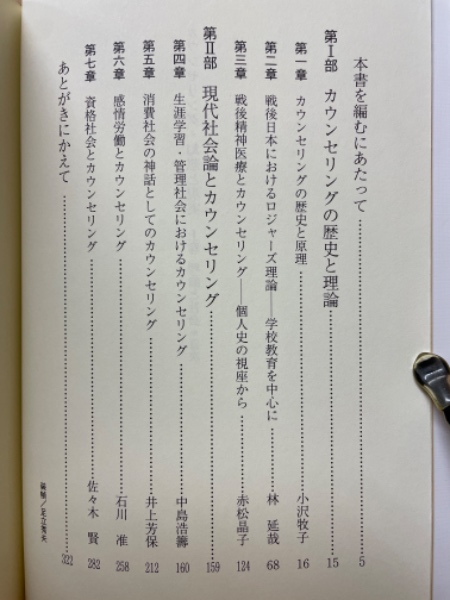 本書を編むにあたって……5
第Ⅰ部 カウンセリングの歴史と理論……15
第一章 カウンセリングの歴史と原理……小沢牧子 16
第二章 戦後日本におけるロジャーズ理論——学校教育を中心に……林 延哉 68
第三章 戦後精神医療とカウンセリング——個人史の視座から……赤松晶子 124
第Ⅱ部 現代社会論とカウンセリング……159
第四章 生涯学習・管理社会におけるカウンセリング……中島浩籌 160
第五章 消費社会の神話としてのカウンセリング……井上芳保 212
第六章 感情労働とカウンセリング……石川 准 258
第七章 資格社会とカウンセリング……佐々木 賢 282
あとがきにかえて……322